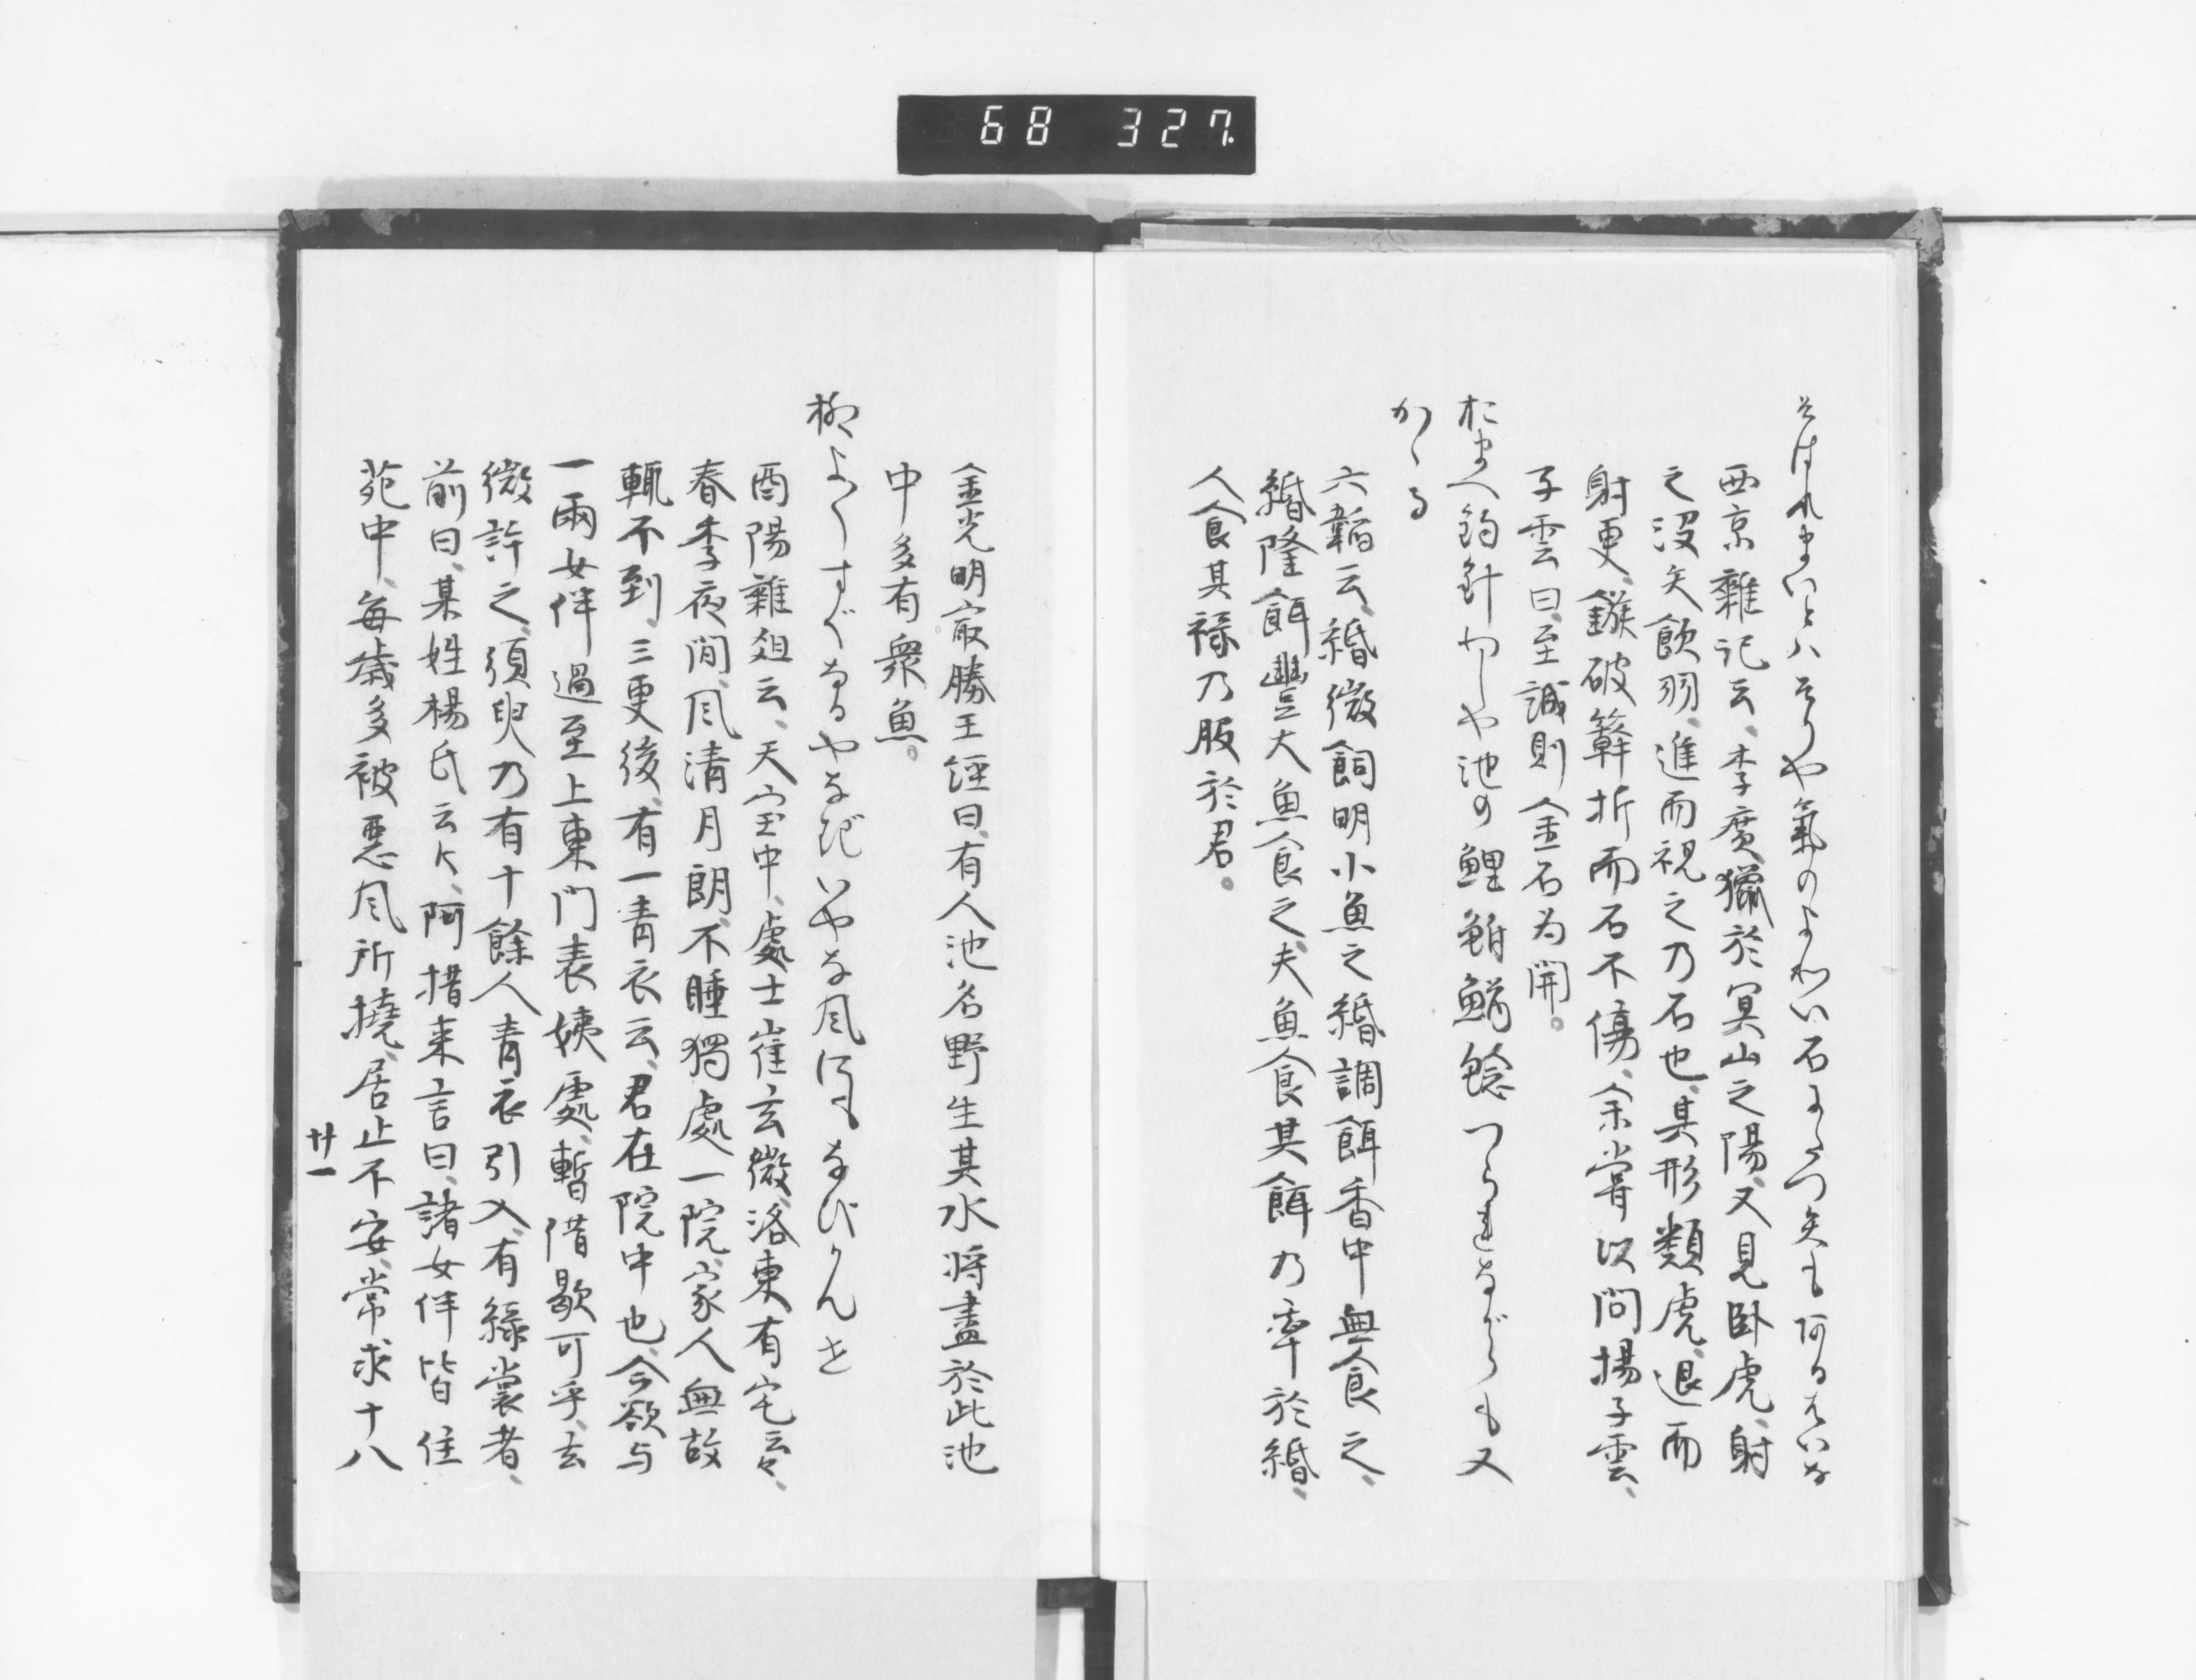 68 327.
西京雜記云、李廣獵於冥山之陽、又見卧虎、射
之没矢飲羽、進而視之乃石也、其形類虎、退而
射更、鏃破簳折而石不傷、余嘗以問揚子雲、
子雲曰、至誠則金石為開。
釣針 や池の鯉鮒 鯰つられながらも又
かゝる
六韜云、緡微餌明小魚之緡調餌香中無食之、
緡隆餌豐大魚食之、夫魚食其餌乃牽於緡、
人食其禄乃服於君。
金光明最勝王經曰、有人池名野生其水将盡於此池
中多有衆魚。
柳よ〳〵すぐなるやなぎいやな風にもなびかんせ
酉陽雜俎云、天宝中、處士崔玄微、洛東有宅云々、
春季夜間、风清月朗、不睡獨處一院、家人無故
輒不到、三更後、有一青衣云、君在院中也、今欲与
一兩女伴過至上東門表姨處、暫借歇可乎、玄
微許之、須臾乃有十餘人青衣引入、有緑裳者、
前曰、某姓楊氏云々、阿措来言曰、諸女伴皆住
苑中、毎歳多被惡风所撓、居止不安、常求十八
廿一